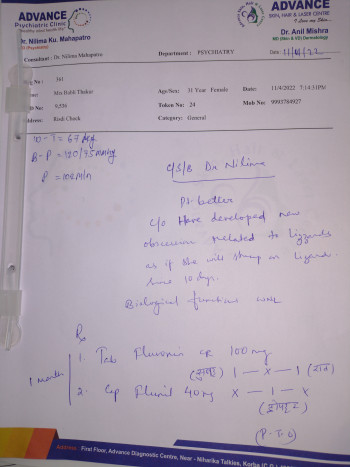 ADVANCE
Psychiatric Clinic
"Healthy mind health life"
Dr. Nilima Ku. Mahapatro
ADVANCE
SKIN, HAIR & LASER CENTRE
I Love my Skin...
Dr. Anil Mishra
MD (Skin & VD) Dermatology
Consultant: Dr. Nilima Mahapatro
Department : PSYCHIATRY
Date 11/4/22
No : 361
Miss Rohli Thakur
Age/Sex: 31 Year Female
Date: 11/4/2022 7:14:31PM
No : 9,536
Token No: 24
Mob No: 9993784927
Address: Risdi Chock
Category: General
W-T = 67 kg
B-P = 120/95 mmHg
P = 102 M/n
C/S/B Dr Nilima
Pt better
C/o Have developed new
obsession related to lizzards
as if she will stamp on lizard.
Since 10 days.
Biological functions well
Rx
1 month
1. Tab Fluvoxin CR 100 mg
(सुबह) 1 - x - 1 (रात)
2. Cap Flunil 40 mg x - 1 - x
(दोपहर)
(P-T-O)
Address: First Floor, Advance Diagnostic Centre, Near - Niharika Talkies, Korba